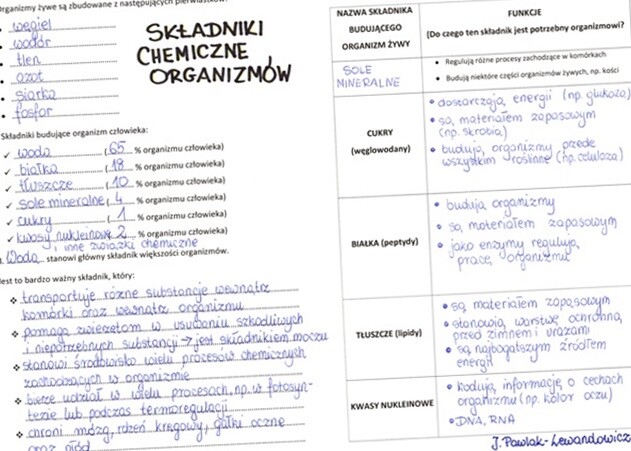 Organizmy żywe są zbudowane z następujących pierwiastków:
• węgiel
• wodór
• tlen
• azot
• siarka
• fosfor
SKŁADNIKI
CHEMICZNE
ORGANIZMÓW
Składniki budujące organizm człowieka:
✓ woda (65 % organizmu człowieka)
✓ białka (18 % organizmu człowieka)
✓ tłuszcze (10 % organizmu człowieka)
✓ sole mineralne (4 % organizmu człowieka)
✓ cukry (1 % organizmu człowieka)
✓ kwasy nukleinowe 2 % organizmu człowieka)
i inne związki chemiczne
Woda stanowi główny składnik większości organizmów.
Jest to bardzo ważny składnik, który:
❖ transportuje różne substancje wewnątrz
komórki oraz wewnątrz organizmu
❖ pomaga zwierzętom w usuwaniu szkodliwych
i niepotrzebnych substancji → jest składnikiem moczu
❖ stanowi środowisko wielu procesów chemicznych
zachodzących w organizmie
❖ bierze udział w wielu procesach, np. w fotosyn-
tezie lub podczas termoregulacji
❖ chroni mózg, rdzeń kręgowy, gałki oczne
oraz płód
NAZWA SKŁADNIKA
BUDUJĄCEGO
ORGANIZM ŻYWY
FUNKCJE
(Do czego ten składnik jest potrzebny organizmowi?
SOLE
MINERALNE
• Regulują różne procesy zachodzące w komórkach
• Budują niektóre części organizmów żywych, np. kości
CUKRY
(węglowodany)
• dostarczają energii (np. glukoza)
• są materiałem zapasowym
(np. skrobia)
• budują organizmy przede
wszystkim roślinne (np. celuloza)
BIAŁKA (peptydy)
• budują organizmy
• są materiałem zapasowym
• jako enzymy regulują
pracę organizmu
TŁUSZCZE (lipidy)
• są materiałem zapasowym
• stanowią warstwę ochronną
przed zimnem i urazami
• są najbogatszym źródłem
energii
KWASY NUKLEINOWE
• kodują informację o cechach
organizmu (np. kolor oczu)
• DNA, RNA
J. Pawlak-Lewandowicz